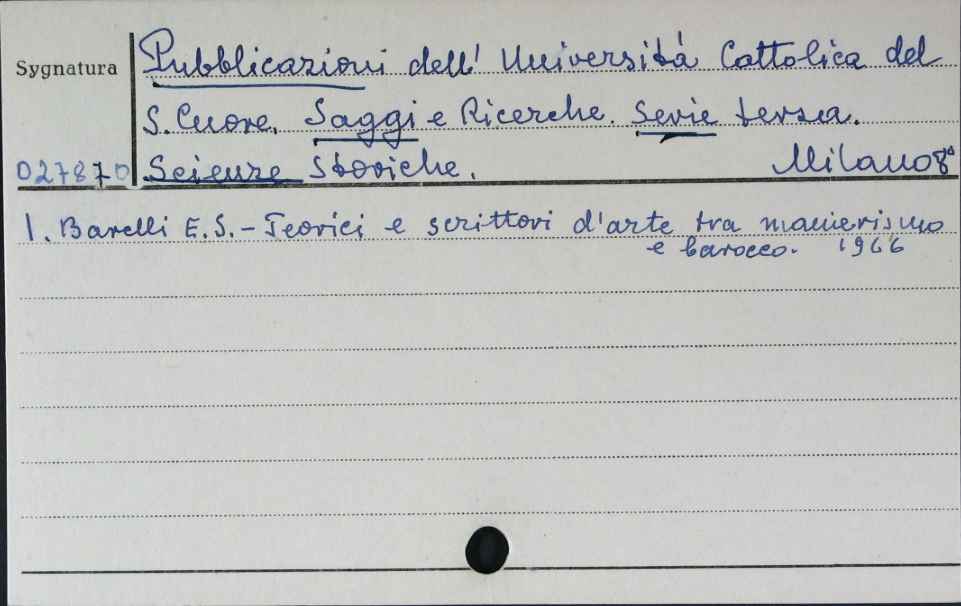 Sygnatura Pubblicazioni dell' Universitá Cattolica del
S. Cuore. Saggi e Ricerche. Serie terza.
027870 Scienze Storiche. Milano 8°
1. Barelli E.S. - Teorici e scrittori d'arte tra manierismo
e barocco. 1966